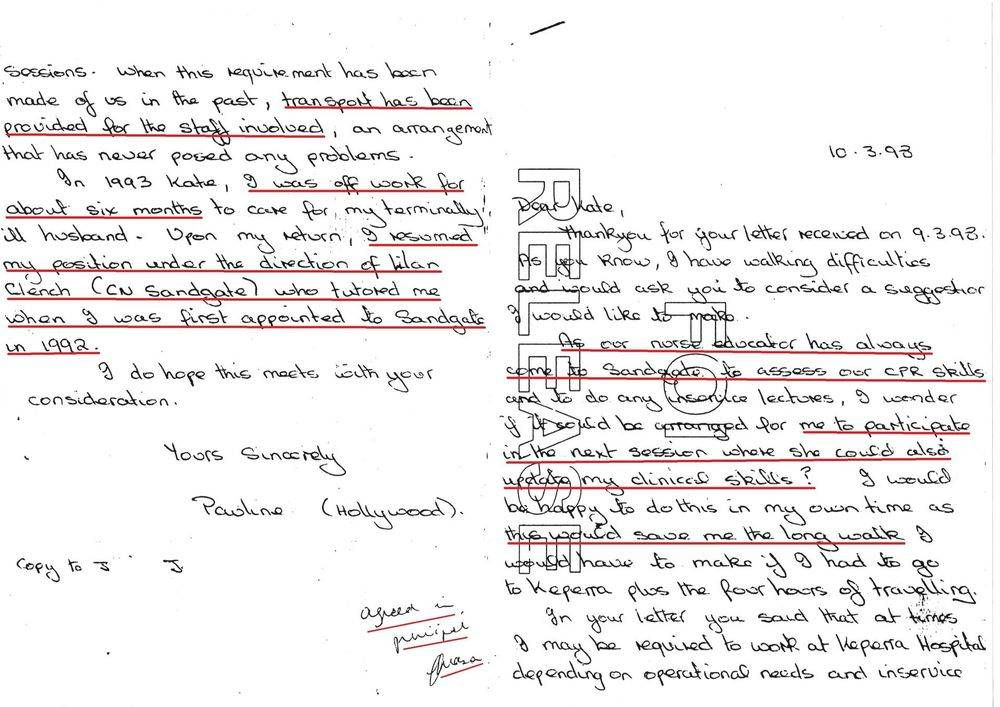 10.3.98
Dear Kate,
Thankyou for your letter received on 9.3.98.
As you know, I have walking difficulties
and would ask you to consider a suggestion
I would like to make.
As our nurse educator has always
come to Sandgate to assess our CPR skills
and to do any inservice lectures, I wonder
if it could be arranged for me to participate
in the next session where she could also
update my clinical skills? I would
be happy to do this in my own time as
this would save me the long walk I
would have to make if I had to go
to Keperra plus the four hours of travelling.
In your letter you said that at times
I may be required to work at Keperra Hospital
depending on operational needs and inservice
FOI
RELEASE
sessions. When this requirement has been
made of us in the past, transport has been
provided for the staff involved, an arrangement
that has never posed any problems.
In 1993 Kate, I was off work for
about six months to care for my terminally
ill husband. Upon my return, I resumed
my position under the direction of Lilan
Clench (CN Sandgate) who tutored me
when I was first appointed to Sandgate
in 1992.
I do hope this meets with your
consideration.
Yours Sincerely
Pauline (Hollywood).
Copy to J J
agreed in